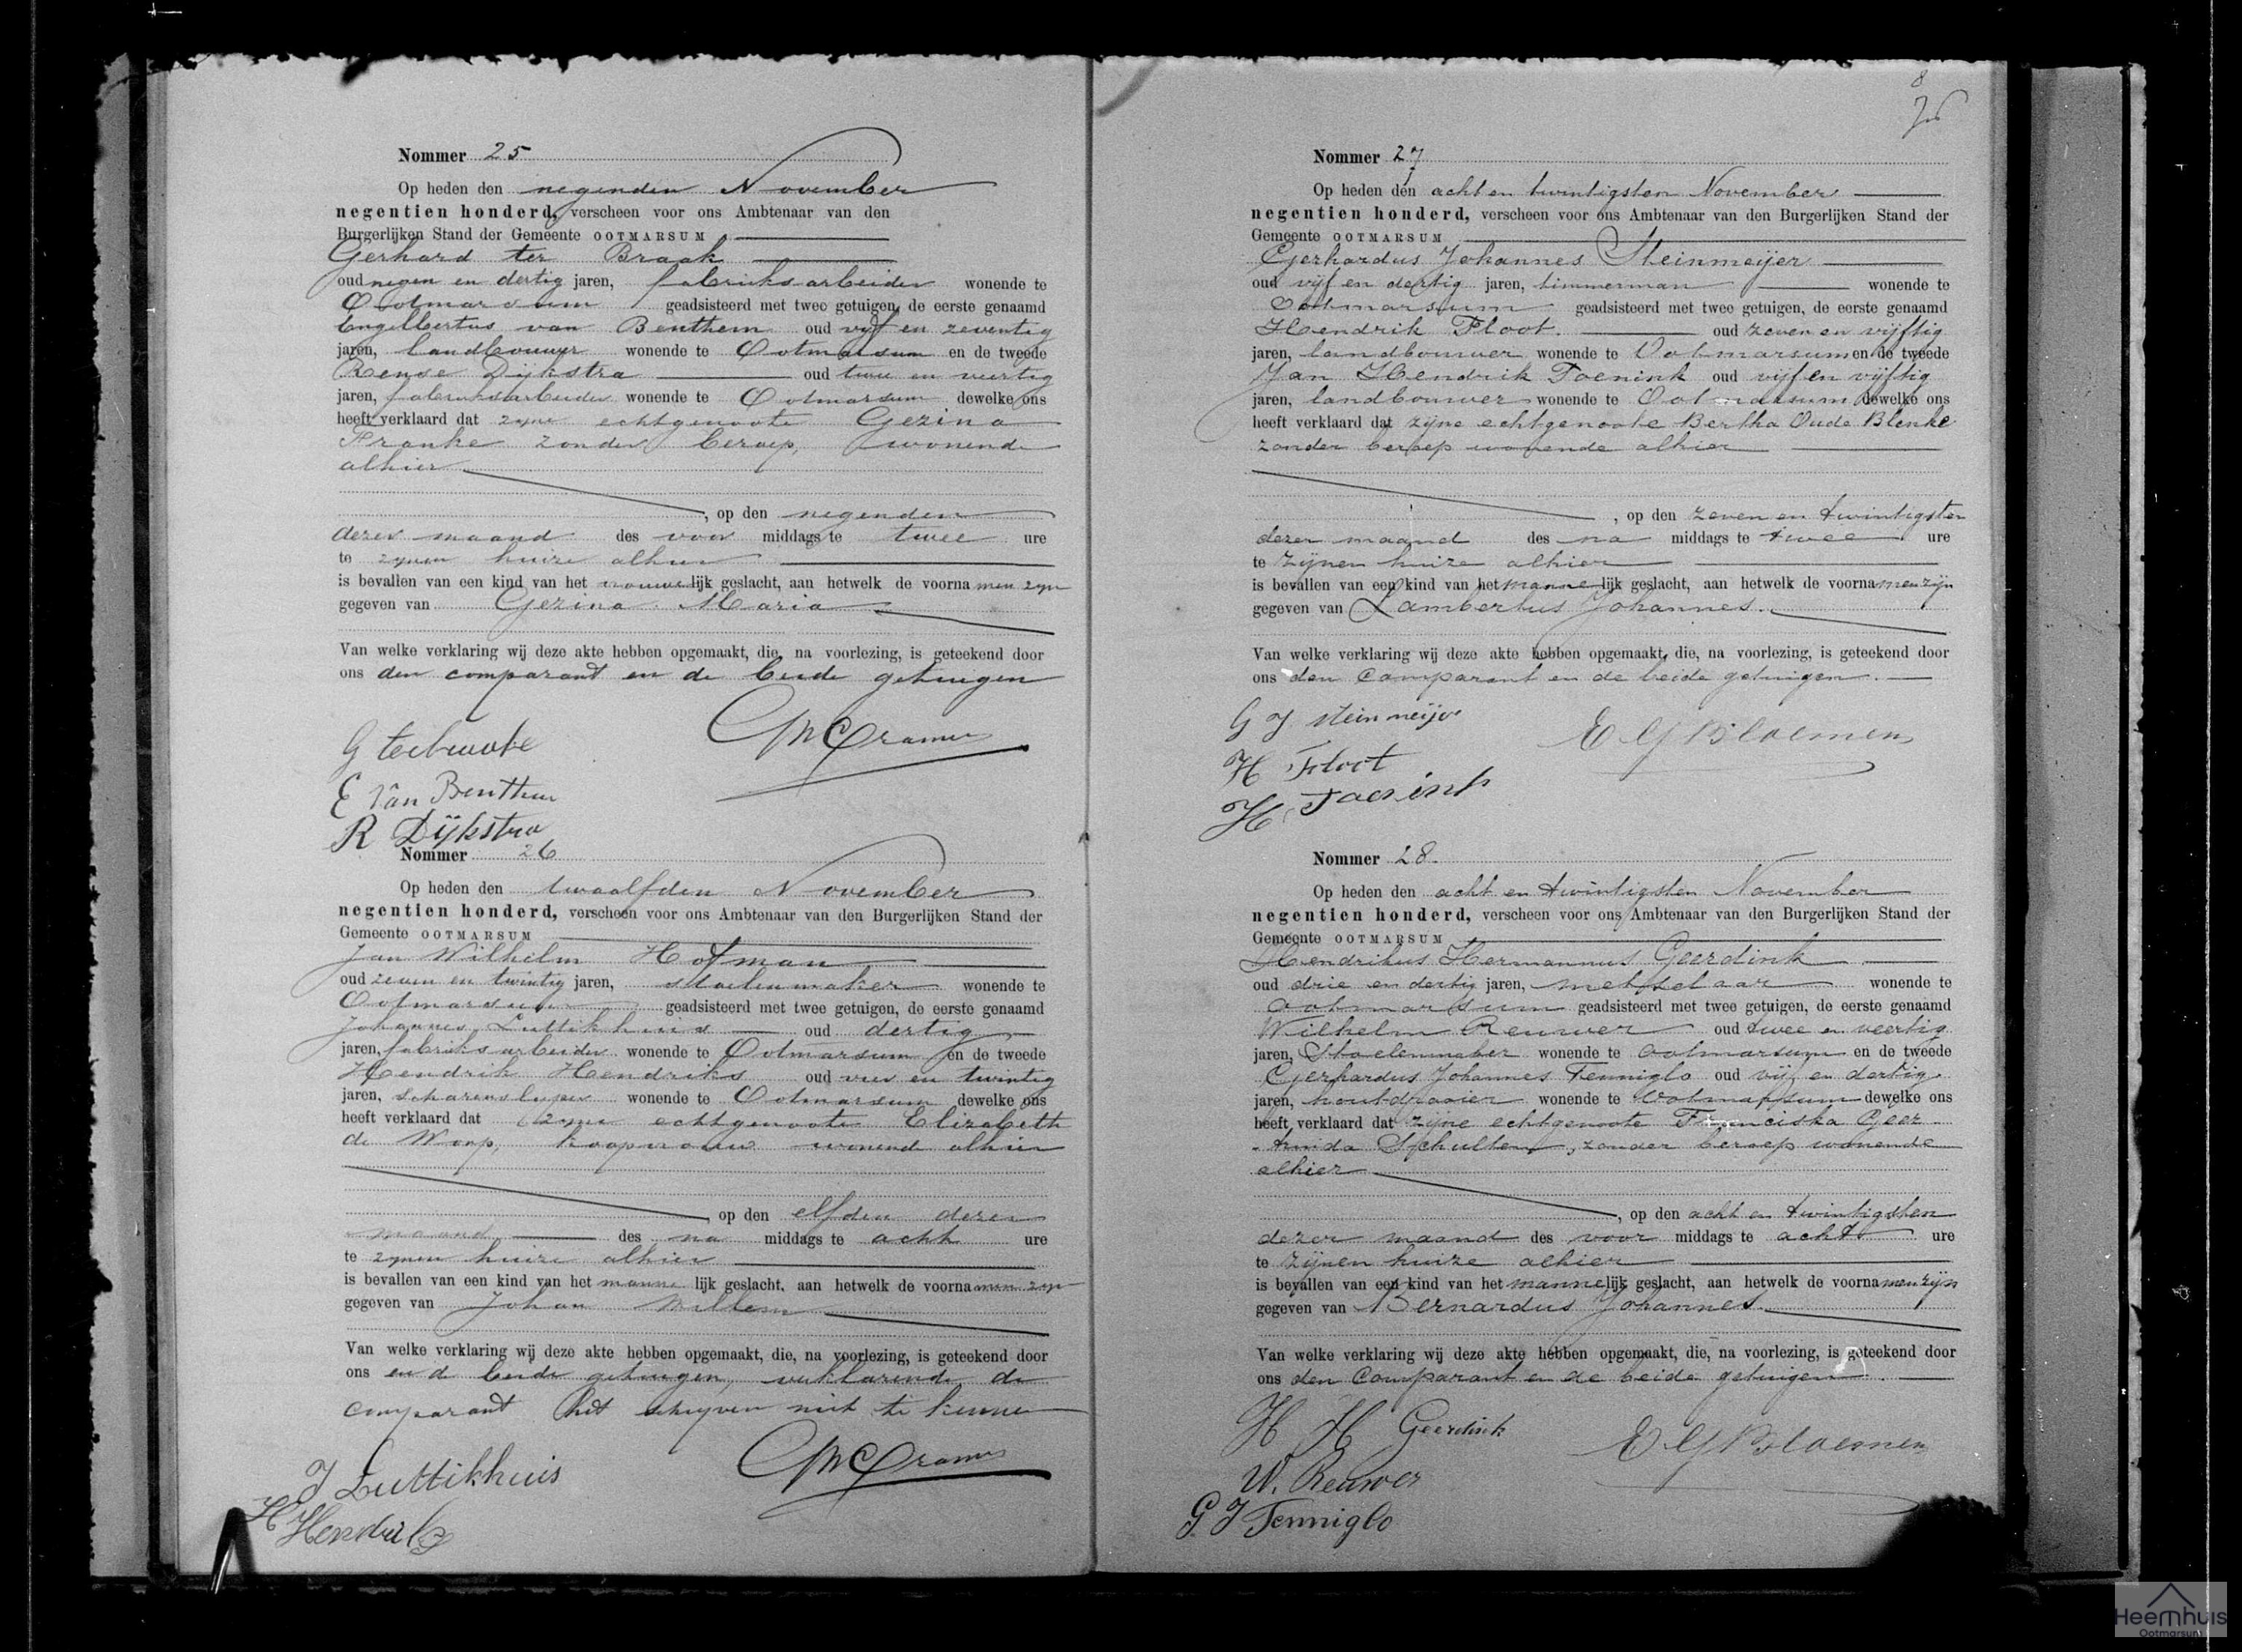 Nommer 25
Op heden den negenden November
negentien honderd, verscheen voor ons Ambtenaar van den
Burgerlijken Stand der Gemeente OOTMARSUM
Gerhard ter Braak
oud negen en dertig jaren, fabrieksarbeider wonende te
Ootmarsum geadsisteerd met twee getuigen, de eerste genaamd
Engelbertus van Benthem oud vijf en zeventig
jaren, landbouwer wonende te Ootmarsum en de tweede
Rense Dijkstra oud twee en veertig
jaren, fabrieksarbeider wonende te Ootmarsum dewelke ons
heeft verklaard dat zijne echtgenoote Gezina
Franke zonder beroep, wonende
alhier
, op den negenden
dezer maand des voor middags te twee ure
te zijnen huize alhier
is bevallen van een kind van het vrouwelijk geslacht, aan hetwelk de voornamen zijn
gegeven van Gezina Maria
Van welke verklaring wij deze akte hebben opgemaakt, die, na voorlezing, is geteekend door
ons den comparant en de beide getuigen
G terbraake
Cramer
E Van Benthem
R Dijkstra
Nommer 26
Op heden den twaalfden November
negentien honderd, verscheen voor ons Ambtenaar van den Burgerlijken Stand der
Gemeente OOTMARSUM
Jan Wilhelm Hofman
oud zeven en twintig jaren, stoelenmaker wonende te
Ootmarsum geadsisteerd met twee getuigen, de eerste genaamd
Johannes Luttikhuis oud dertig
jaren, fabrieksarbeider wonende te Ootmarsum en de tweede
Hendrik Hendriks oud vier en twintig
jaren, scharensliper wonende te Ootmarsum dewelke ons
heeft verklaard dat zijne echtgenoote Elizabeth
de Worp, koopvrouw wonende alhier
, op den elfden dezer
maand des na middags te acht ure
te zijnen huize alhier
is bevallen van een kind van het mannelijk geslacht, aan hetwelk de voornamen zijn
gegeven van Johan Willem
Van welke verklaring wij deze akte hebben opgemaakt, die, na voorlezing, is geteekend door
ons en de beide getuigen, verklarende de
comparant het schrijven niet te kennen
Cramer
J Luttikhuis
H Hendriks
8
Nommer 27
Op heden den acht en twintigsten November
negentien honderd, verscheen voor ons Ambtenaar van den Burgerlijken Stand der
Gemeente OOTMARSUM
Gerhardus Johannes Steinmeijer
oud vijf en dertig jaren, timmerman wonende te
Ootmarsum geadsisteerd met twee getuigen, de eerste genaamd
Hendrik Floot. oud zeven en vijftig
jaren, landbouwer wonende te Ootmarsum en de tweede
Jan Hendrik Toenink oud vijf en vijftig
jaren, landbouwer wonende te Ootmarsum dewelke ons
heeft verklaard dat zijne echtgenoote Bertha Oude Blenke
zonder beroep wonende alhier
, op den zeven en twintigsten
dezer maand des na middags te twee ure
te zijnen huize alhier
is bevallen van een kind van het mannelijk geslacht, aan hetwelk de voornamen zijn
gegeven van Lambertus Johannes.
Van welke verklaring wij deze akte hebben opgemaakt, die, na voorlezing, is geteekend door
ons den Comparant en de beide getuigen.
G J steinmeijer
E G Bloemen
H Floot
H Toenink
Nommer 28.
Op heden den acht en twintigsten November
negentien honderd, verscheen voor ons Ambtenaar van den Burgerlijken Stand der
Gemeente OOTMARSUM
Hendrikus Hermannus Geerdink
oud drie en dertig jaren, metselaar wonende te
Ootmarsum geadsisteerd met twee getuigen, de eerste genaamd
Wilhelm Reuwer oud twee en veertig
jaren, Stoelenmaker wonende te Ootmarsum en de tweede
Gerhardus Johannes Tenniglo oud vijf en dertig
jaren, houtdraaier wonende te Ootmarsum dewelke ons
heeft verklaard dat zijne echtgenoote Franciska Geer-
truida Scholten, zonder beroep wonende
alhier
, op den acht en twintigsten
dezer maand des voor middags te acht ure
te zijnen huize alhier
is bevallen van een kind van het mannelijk geslacht, aan hetwelk de voornamen zijn
gegeven van Bernardus Johannes.
Van welke verklaring wij deze akte hebben opgemaakt, die, na voorlezing, is geteekend door
ons den Comparant en de beide getuigen.
H H Geerdink
E G Bloemen
W. Reuwer
G. J Tenniglo
Heemhuis
Ootmarsum